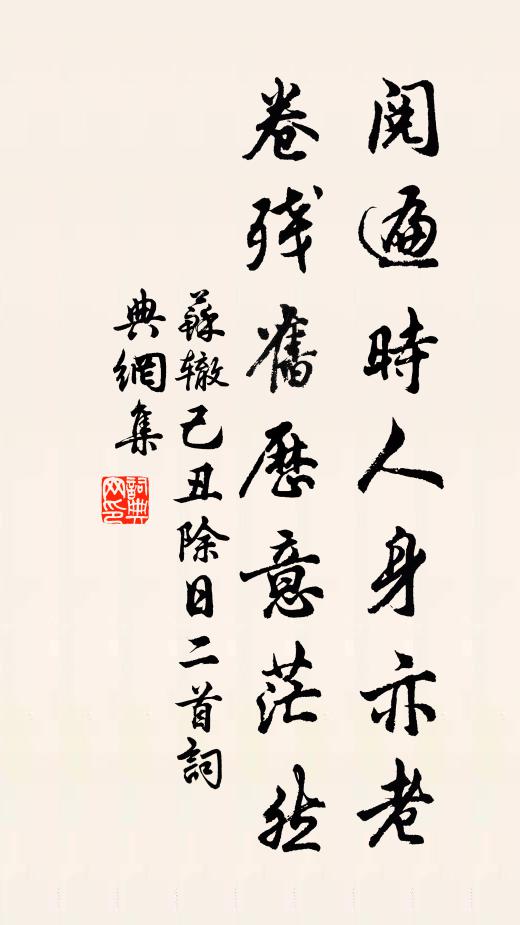 閱遍時人身亦老
卷殘舊歷意茫然
蘇辙己丑除日二首詞
典網集
詞典网印